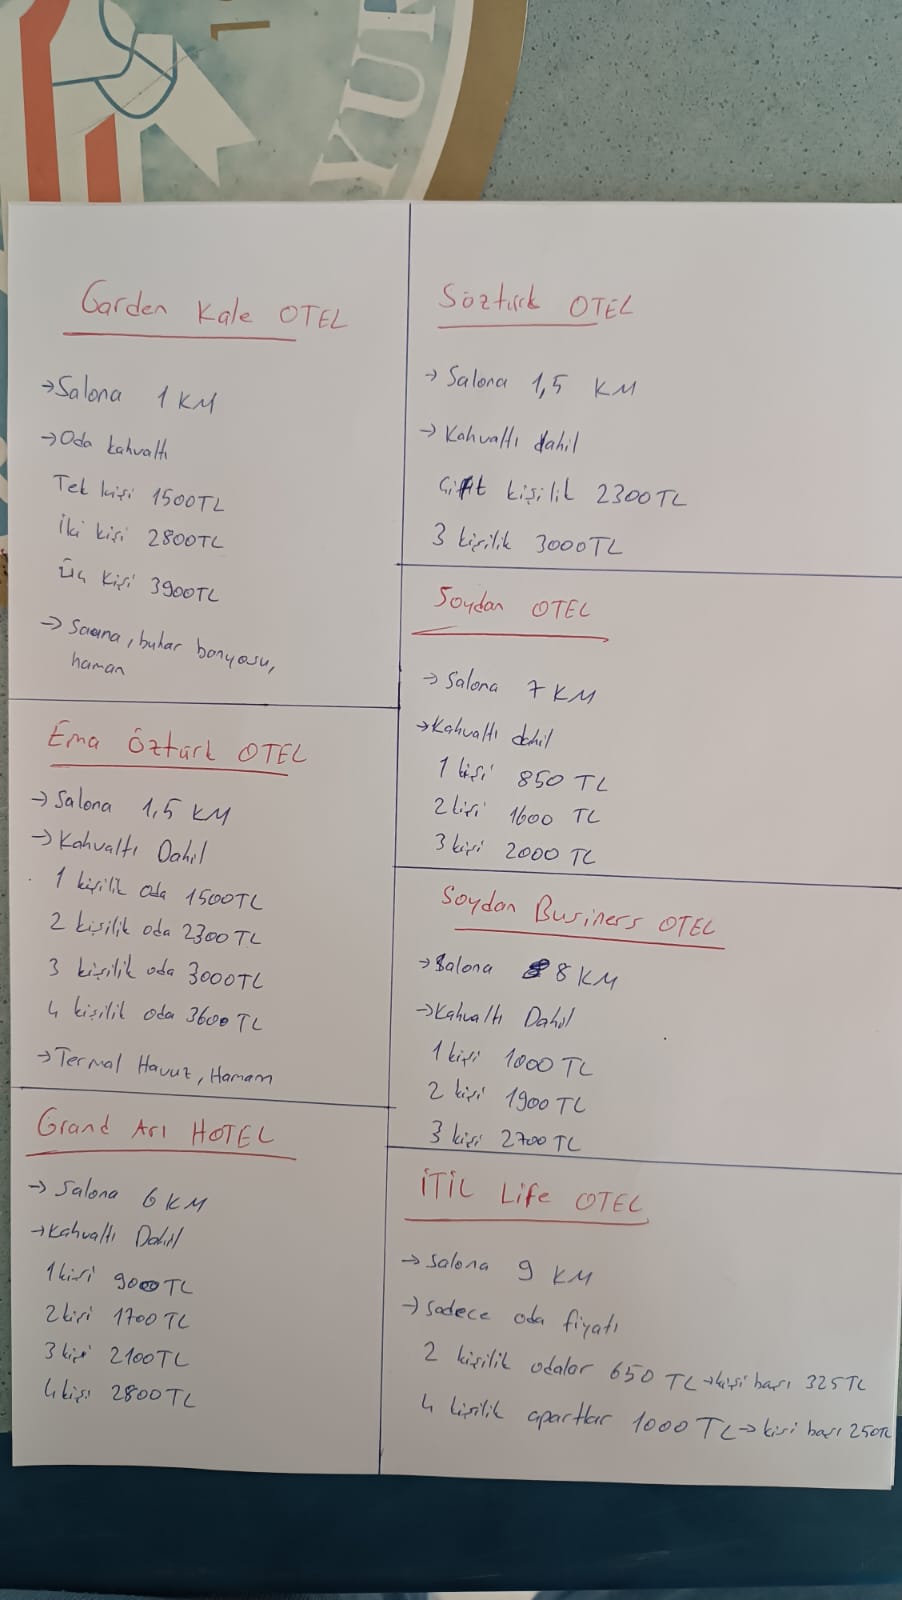 YUR
Garden Kale OTEL
→Salona 1 KM
→Oda kahvaltı
Tek kişi 1500TL
İki kişi 2800TL
Üç Kişi 3900TL
→ Sauna, buhar banyosu,
haman
Ema Öztürk OTEL
→ Salona 1,5 KM
→ Kahvaltı Dahil
1 kişilik oda 1500TL
2 kişilik oda 2300TL
3 kişilik oda 3000TL
4 kişilik oda 3600TL
→Termal Havuz, Hamam
Grand Arı HOTEL
→ Salona 6 KM
→Kahvaltı Dahil
1 kişi 900TL
2 kişi 1700TL
3 kişi 2100TL
4 kişi 2800TL
Söztürk OTEL
→ Salona 1,5 KM
→ Kahvaltı dahil
Çift kişilik 2300TL
3 kişilik 3000TL
Soydan OTEL
→ Salona 7 KM
→Kahvaltı dahil
1 kişi 850 TL
2 kişi 1600 TL
3 kişi 2000 TL
Soydan Business OTEL
→Salona 8 KM
→Kahvaltı Dahil
1 kişi 1000 TL
2 kişi 1900 TL
3 kişi 2700TL
İTİL Life OTEL
→ Salona 9 KM
→ Sadece oda fiyatı
2 kişilik odalar 650 TL→kişi başı 325TL
4 kişilik apartlar 1000 TL→ kişi başı 250TL